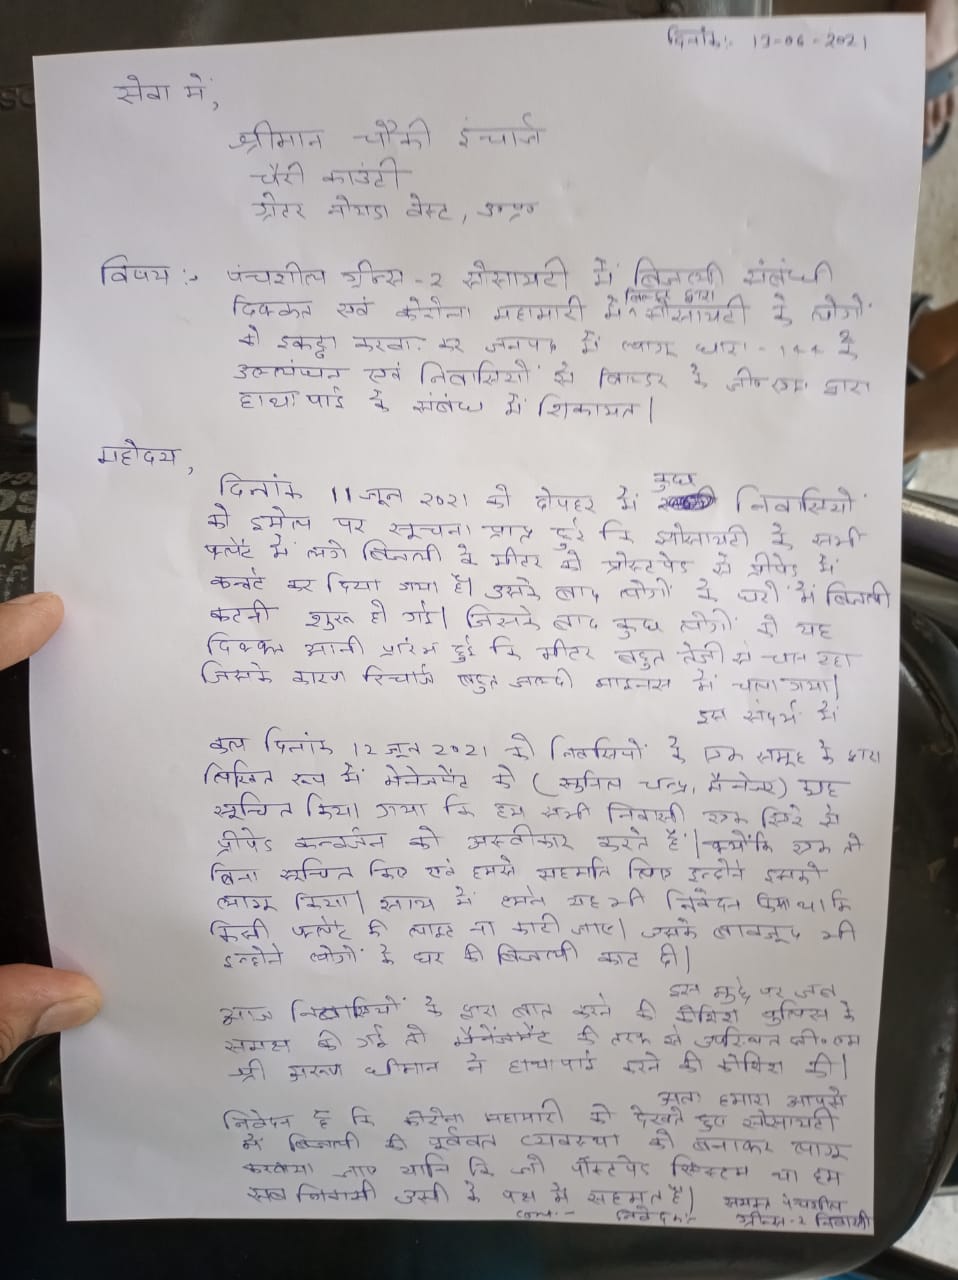 दिनांक:- 13-06-2021
सेवा में,
श्रीमान चौकी इंचार्ज
चैरी काउंटी
ग्रेटर नोयडा वेस्ट, उ०प्र०
विषय:- पंचशील ग्रीन्स-2 सोसायटी में बिजली संबंधी
दिक्कत एवं कोरोना महामारी में बिल्डर द्वारा सोसायटी के लोगों
को इकट्ठा करवा कर जनपद में लागू धारा-144 के
उल्लंघन एवं निवासियों से बिल्डर के जी०एम० द्वारा
हाथापाई के संबंध में शिकायत।
महोदय,
दिनांक 11 जून 2021 को दोपहर में कुछ निवासियों
को इमेल पर सूचना प्राप्त हुई कि सोसायटी के सभी
फ्लैट में लगे बिजली के मीटर को पोस्टपेड से प्रीपेड में
कन्वर्ट कर दिया गया है। उसके बाद लोगों के घरों में बिजली
कटनी शुरू हो गई। जिसके बाद कुछ लोगों को यह
दिक्कत आनी प्रारंभ हुई कि मीटर बहुत तेजी से चल रहा
जिसके कारण रिचार्ज बहुत जल्दी माइनस में चला गया।
इस संदर्भ में
कल दिनांक 12 जून 2021 को निवासियों के एक समूह के द्वारा
लिखित रूप में मेनेजमेंट को ( चन्द्र, मैनेजर) यह
सूचित किया गया कि हम सभी निवासी एक सिरे से
प्रीपेड कन्वर्जन को अस्वीकार करते हैं। क्योंकि एक तो
बिना सूचित किए एवं हमसे सहमति लिए इन्होंने इसको
लागू किया। साथ में हमने यह भी निवेदन किया था कि
किसी फ्लैट की लाइट ना काटी जाए। उसके बावजूद भी
इन्होंने लोगों के घर की बिजली काट दी।
इस मुद्दे पर जब
आज निवासियों के द्वारा बात करने की कोशिश पुलिस के
समक्ष की गई तो मैनेजमेंट की तरफ से उपस्थित जी०एम
श्री अरुण धीमान ने हाथापाई करने की कोशिश की।
अतः हमारा आपसे
निवेदन है कि कोरोना महामारी को देखते हुए सोसायटी
में बिजली की पूर्ववत व्यवस्था को बनाकर लागू
करवाया जाए यानि कि जो पोस्टपेड सिस्टम था हम
सब निवासी उसी के पक्ष में सहमत हैं।
निवेदक:- समस्त पंचशील
ग्रीन्स-2 निवासी